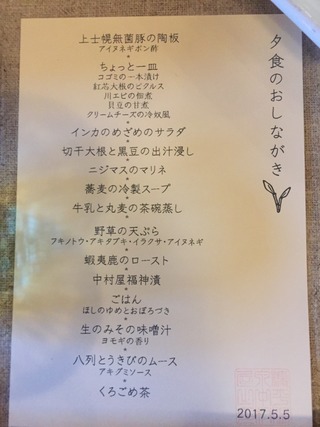 夕食のおしながき
上士幌無菌豚の陶板
アイヌネギポン酢
ちょっと一皿
コゴミの一本漬け
紅芯大根とのピクルス
川エビの佃煮
貝豆の甘煮
クリームチーズの冷奴風
インカのめざめのサラダ
切干大根と黒豆の出汁浸し
ニジマスのマリネ
蕎麦の冷製スープ
牛乳と丸麦の茶碗蒸し
野草の天ぷら
フキノトウ・アキタブキ・イラクサ・アイヌネギ
蝦夷鹿のロースト
中村屋福神漬
ごはん
ほしのゆめとおぼろづき
生のみその味噌汁
ヨモギの香り
八列とうきびのムース
アキグミソース
くろごめ茶
2017.5.5